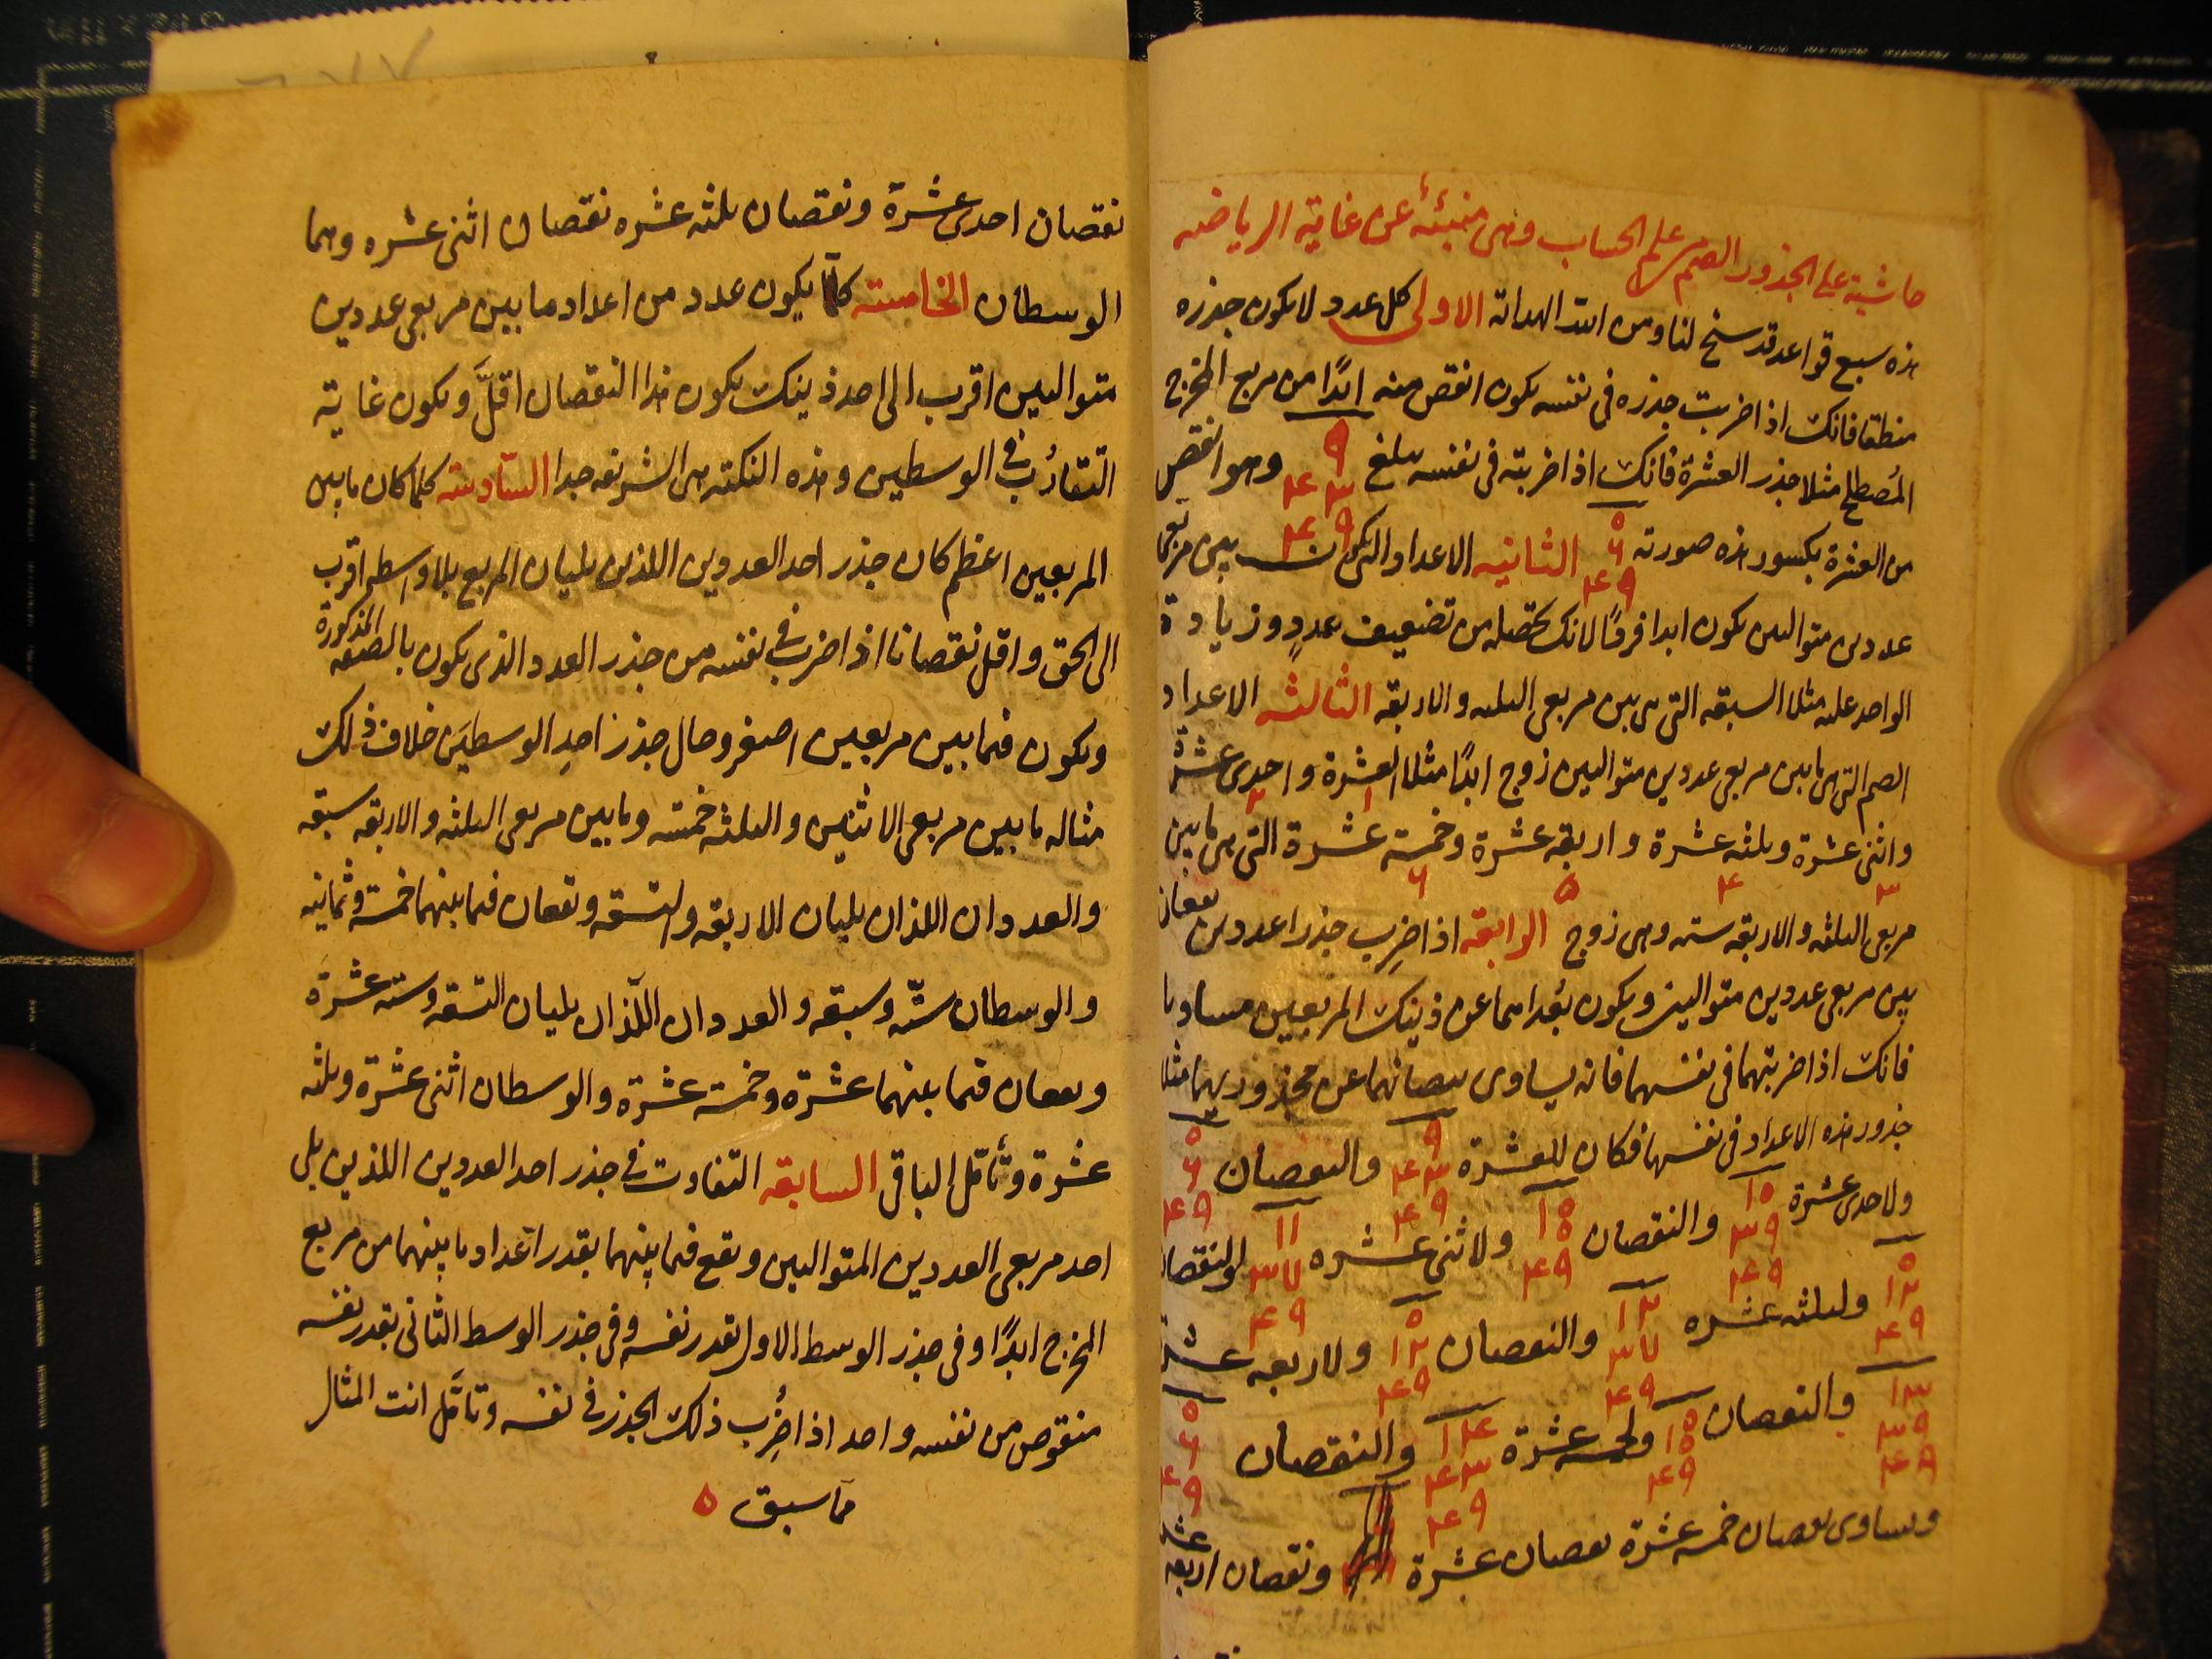 حاشية على الجذور الصم من علم الحساب وهى منبئة عن غاية الرياضه
هذه سبع قواعد قد سنح لنا ومن الله الهداية الاولى كل عدد لا يكون جذره
منطقا فانك اذا ضربت جذره فى نفسه يكون انقص منه ابدًا من مربع المخرج
المُصطلح مثلا جذر العشرة فانك اذا ضربته فى نفسه يبلغ ٩ ٤٣ ٤٩ وهو انقص
من العشرة بكسور هذه صورته ٥ ٦ ٤٩ الثانيه الاعداد التى تكون بين مربعى
عددين متواليين يكون ابدا فردًا لانك تحصله من تضعيف عددٍ وزيادة
الواحد عليه مثلا الستة التى هى بين مربعى الثلثه والاربعه الثالثه الاعداد
الصم التى هى مابين مربعى عددين متواليين زوج ابدًا مثلا العشرة واحدى عشرة
واثنى عشرة وثلثه عشرة واربعه عشرة وخمسة عشرة التى هى مابين
مربعى الثلثه والاربعه سته وهى زوج الرابعه اذا ضُرب جذرا عددين يقعان
بين مربعى عددين متواليين ويكون بُعداهما عن ذينك المربعين مساويا
فانك اذا ضربتهما فى نفسهما فانه يساوى نقصانهما عن مجذوريهما مثلا
جذور هذه الاعداد فى نفسها فكان للعشرة ٩ ٤٣ ٤٩ والنقصان ٥ ٦ ٤٩
ولاحدى عشرة ١٠ ٣٩ ٤٩ والنقصان ٥ ١٠ ٤٩ ولاثنى عشره ١١ ٣٧ ٤٩ والنقصان
٥ ١٢ ٤٩ ولثلثه عشره ١٢ ٣٧ ٤٩ والنقصان ٥ ١٢ ٤٩ ولاربعه عشرة
١٣ ٣٩ ٤٩ والنقصان ٥ ١٠ ٤٩ ولخمسه عشرة ١٤ ٤٣ ٤٩ والنقصان ٥ ٦ ٤٩
ويساوى نقصان خمسه عشرة نقصان عشرة ونقصان اربعه عشر
نقصان احدى عشرة ونقصان ثلثه عشره نقصان اثنى عشره وهما
الوسطان الخامسة كلما يكون عدد من اعداد ما بين مربعى عددين
متواليين اقرب الى احد ذينك يكون هذا النقصان اقلَّ ويكون غاية
التقارُب فى الوسطين وهذه النكته هى الشريفه جدا السّادسة كلما كان مابين
المربعين اعظم كان جذر احد العددين اللذين يليان المربع بلا واسطه اقرب
الى الحق واقل نقصانا اذا ضرب فى نفسه من جذر العدد الذى يكون بالصفه المذكورة
ويكون فيما بين مربعين اصغر وحال جذر احدِ الوسطين خلاف ذلك
مثاله ما بين مربعى الاثنين والثلثه خمسه وما بين مربعى الثلثه والاربعه سبعه
والعددان اللذان يليان الاربعه والتسعه ويقعان فيما بينهما خمسة وثمانيه
والوسطان ستّه وسبعه والعددان اللّذان يليان التسعه وسته عشرة
ويقعان فيما بينهما عشرة وخمسة عشرة والوسطان اثنى عشرة وثلثه
عشرة وتأمّل الباقى السابعه التفاوت فى جذر احد العددين اللذين يلى
احد مربعى العددين المتواليين ويقع فيما بينهما بقدر اعداد ما بينهما من مربع
المخرج ابدًا وفى جذر الوسط الاول بقدر نفسه وفى جذر الوسط الثانى بقدر نفسه
منقوص من نفسه واحد اذا ضُرب ذلك الجذر فى نفسه وتأمّل انت المثال
مما سبق ٥